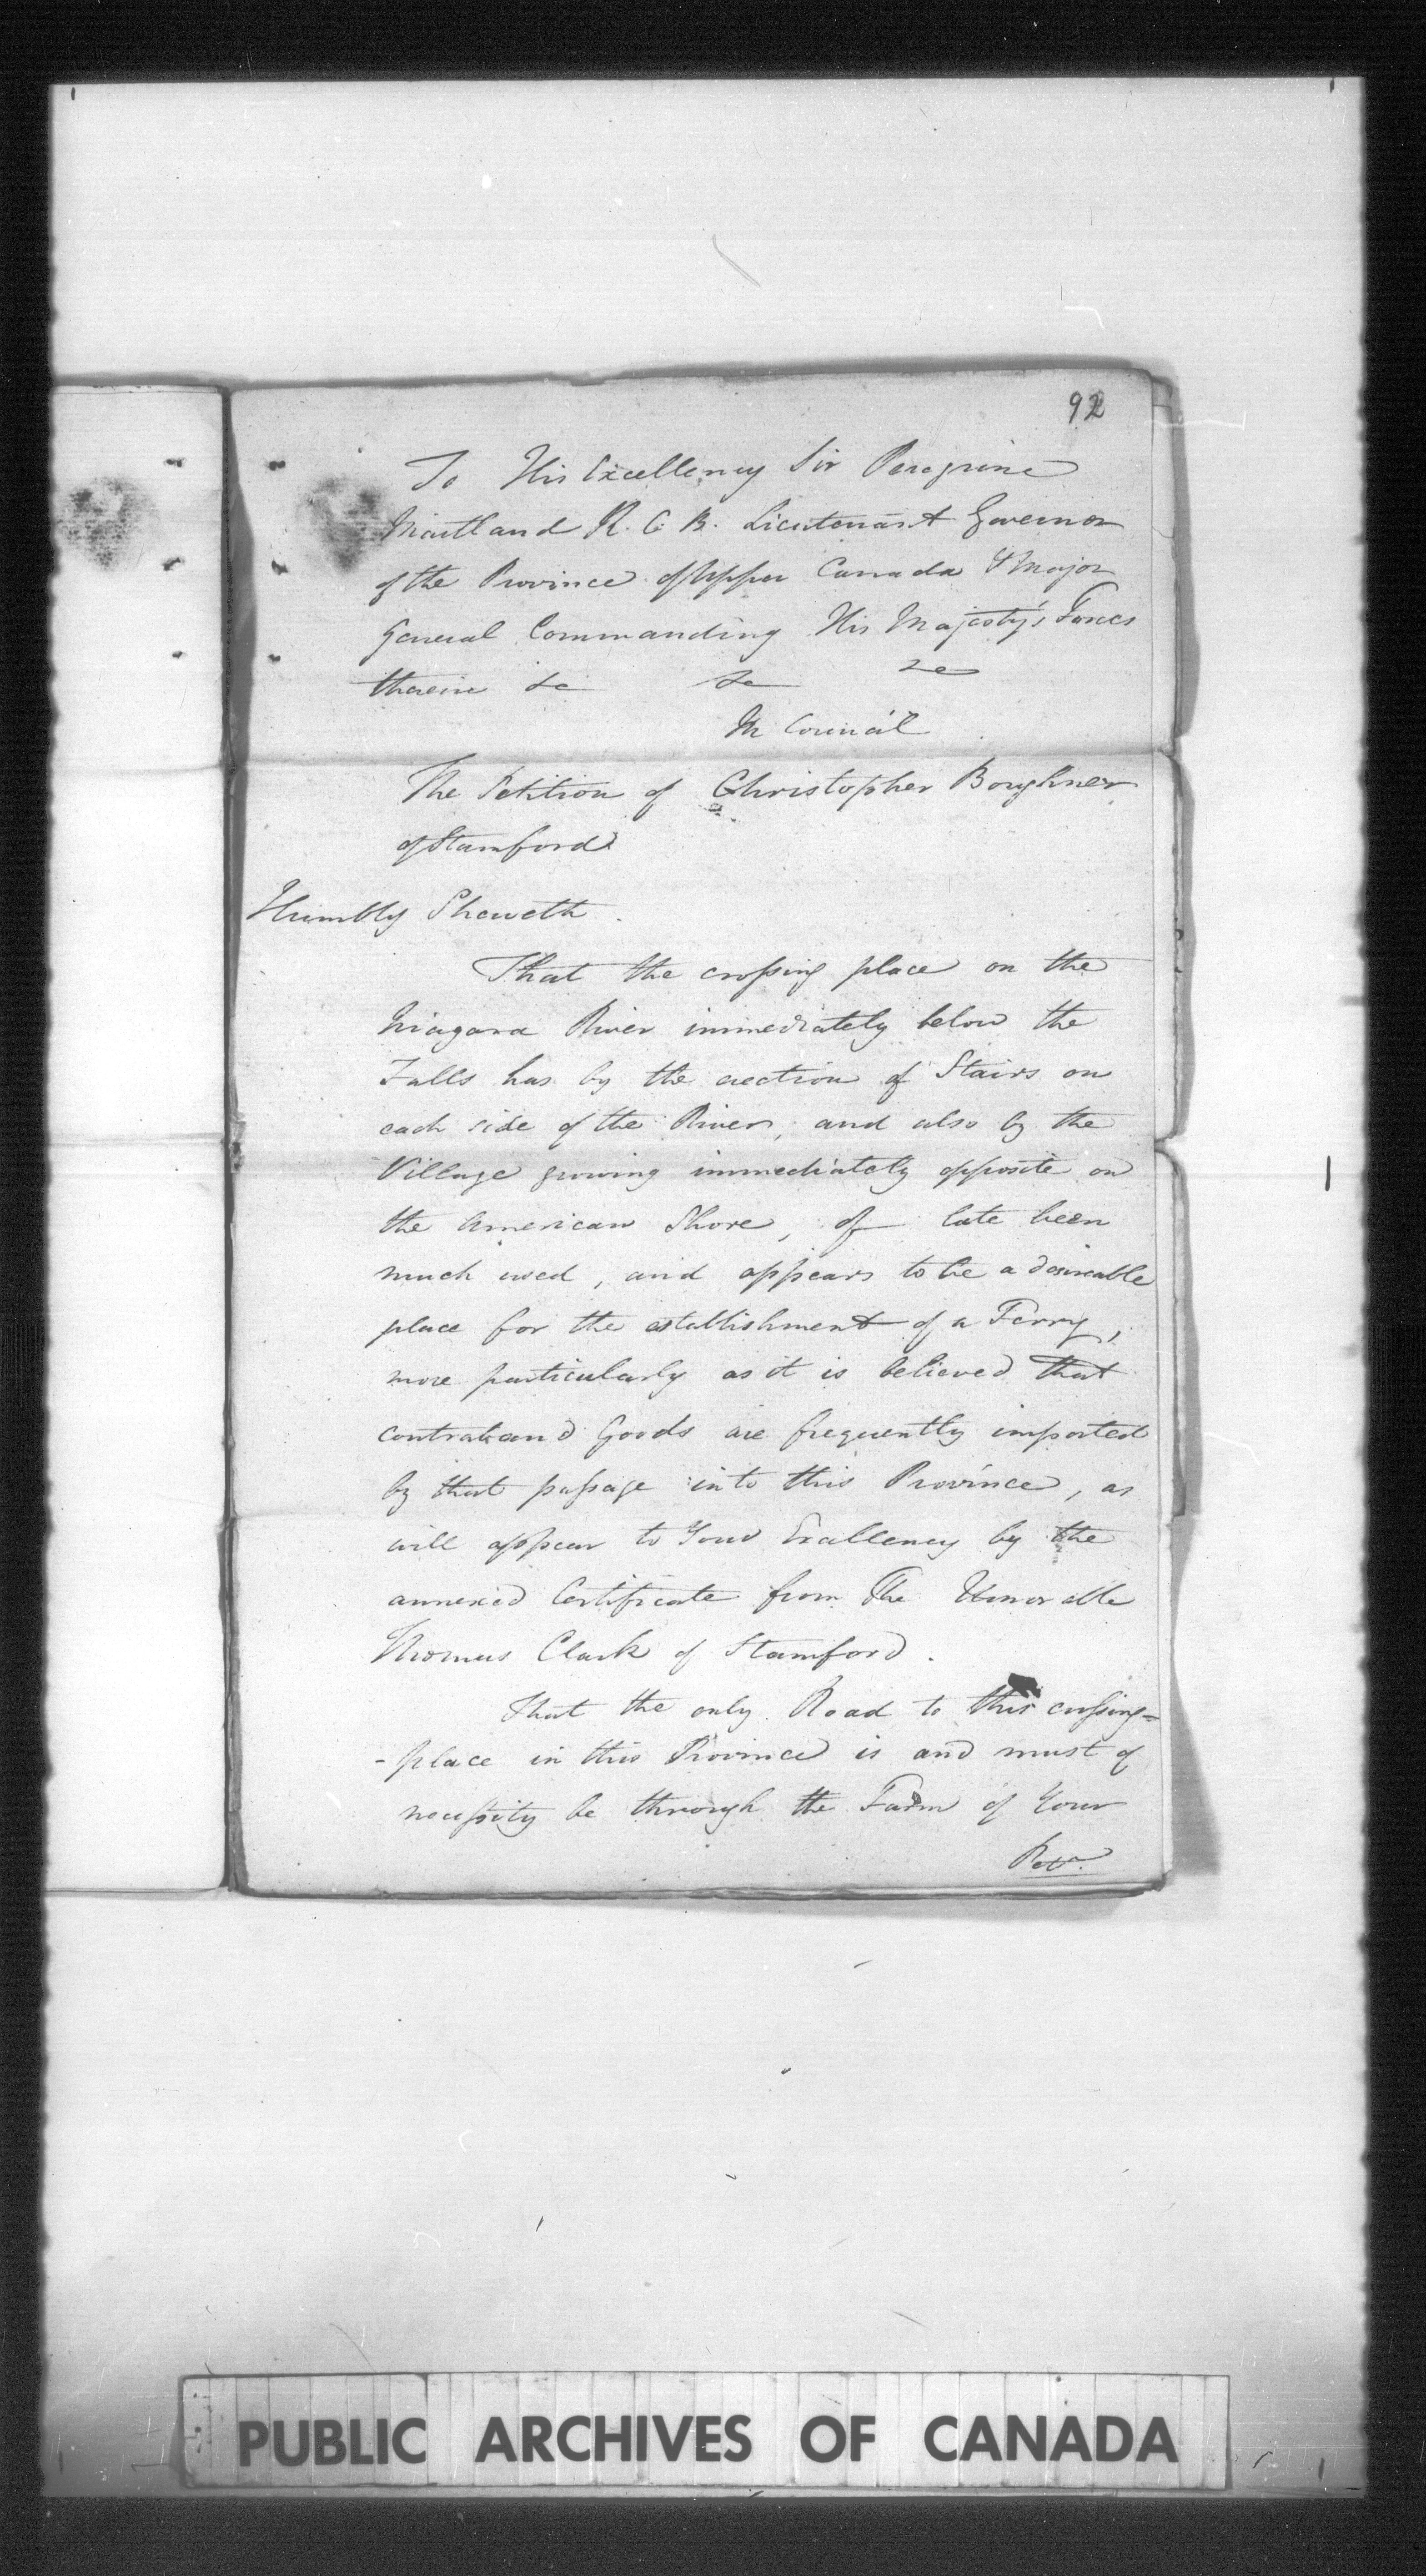 92
To His Excellency Sir Peregrine
Maitland K. C. B. Lieutenant Governor
of the Province of Upper Canada & Major
General Commanding His Majesty's Forces
therein &c &c &c
In Council
The Petition of Christopher Boughner
of Stamford
Humbly Sheweth.
That the crossing place on the
Niagara River immediately below the
Falls has by the erection of Stairs on
each side of the River, and also by the
Village growing immediately opposite on
the American Shore, of late been
much used, and appears to be a desireable
place for the establishment of a Ferry,
more particularly as it is believed that
contraband Goods are frequently imported
by that passage into this Province, as
will appear to Your Excellency by the
annexed Certificate from The Honorable
Thomas Clark of Stamford.
That the only Road to this crossing=
-place in this Province is and must of
necessity be through the Farm of Your
Petr.
PUBLIC ARCHIVES OF CANADA